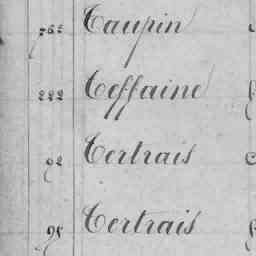 765 Taupin
222 Teffaine
92 Tertrais
95 Tertrais